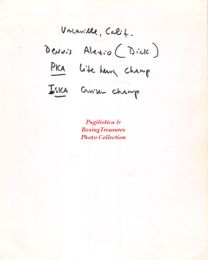 Vacaville, Calif.
Dennis Alexio (Dick)
PKA Lite heavy champ
ISKA Cruiser champ
Pugilistica &
BoxingTreasures
Photo Collection